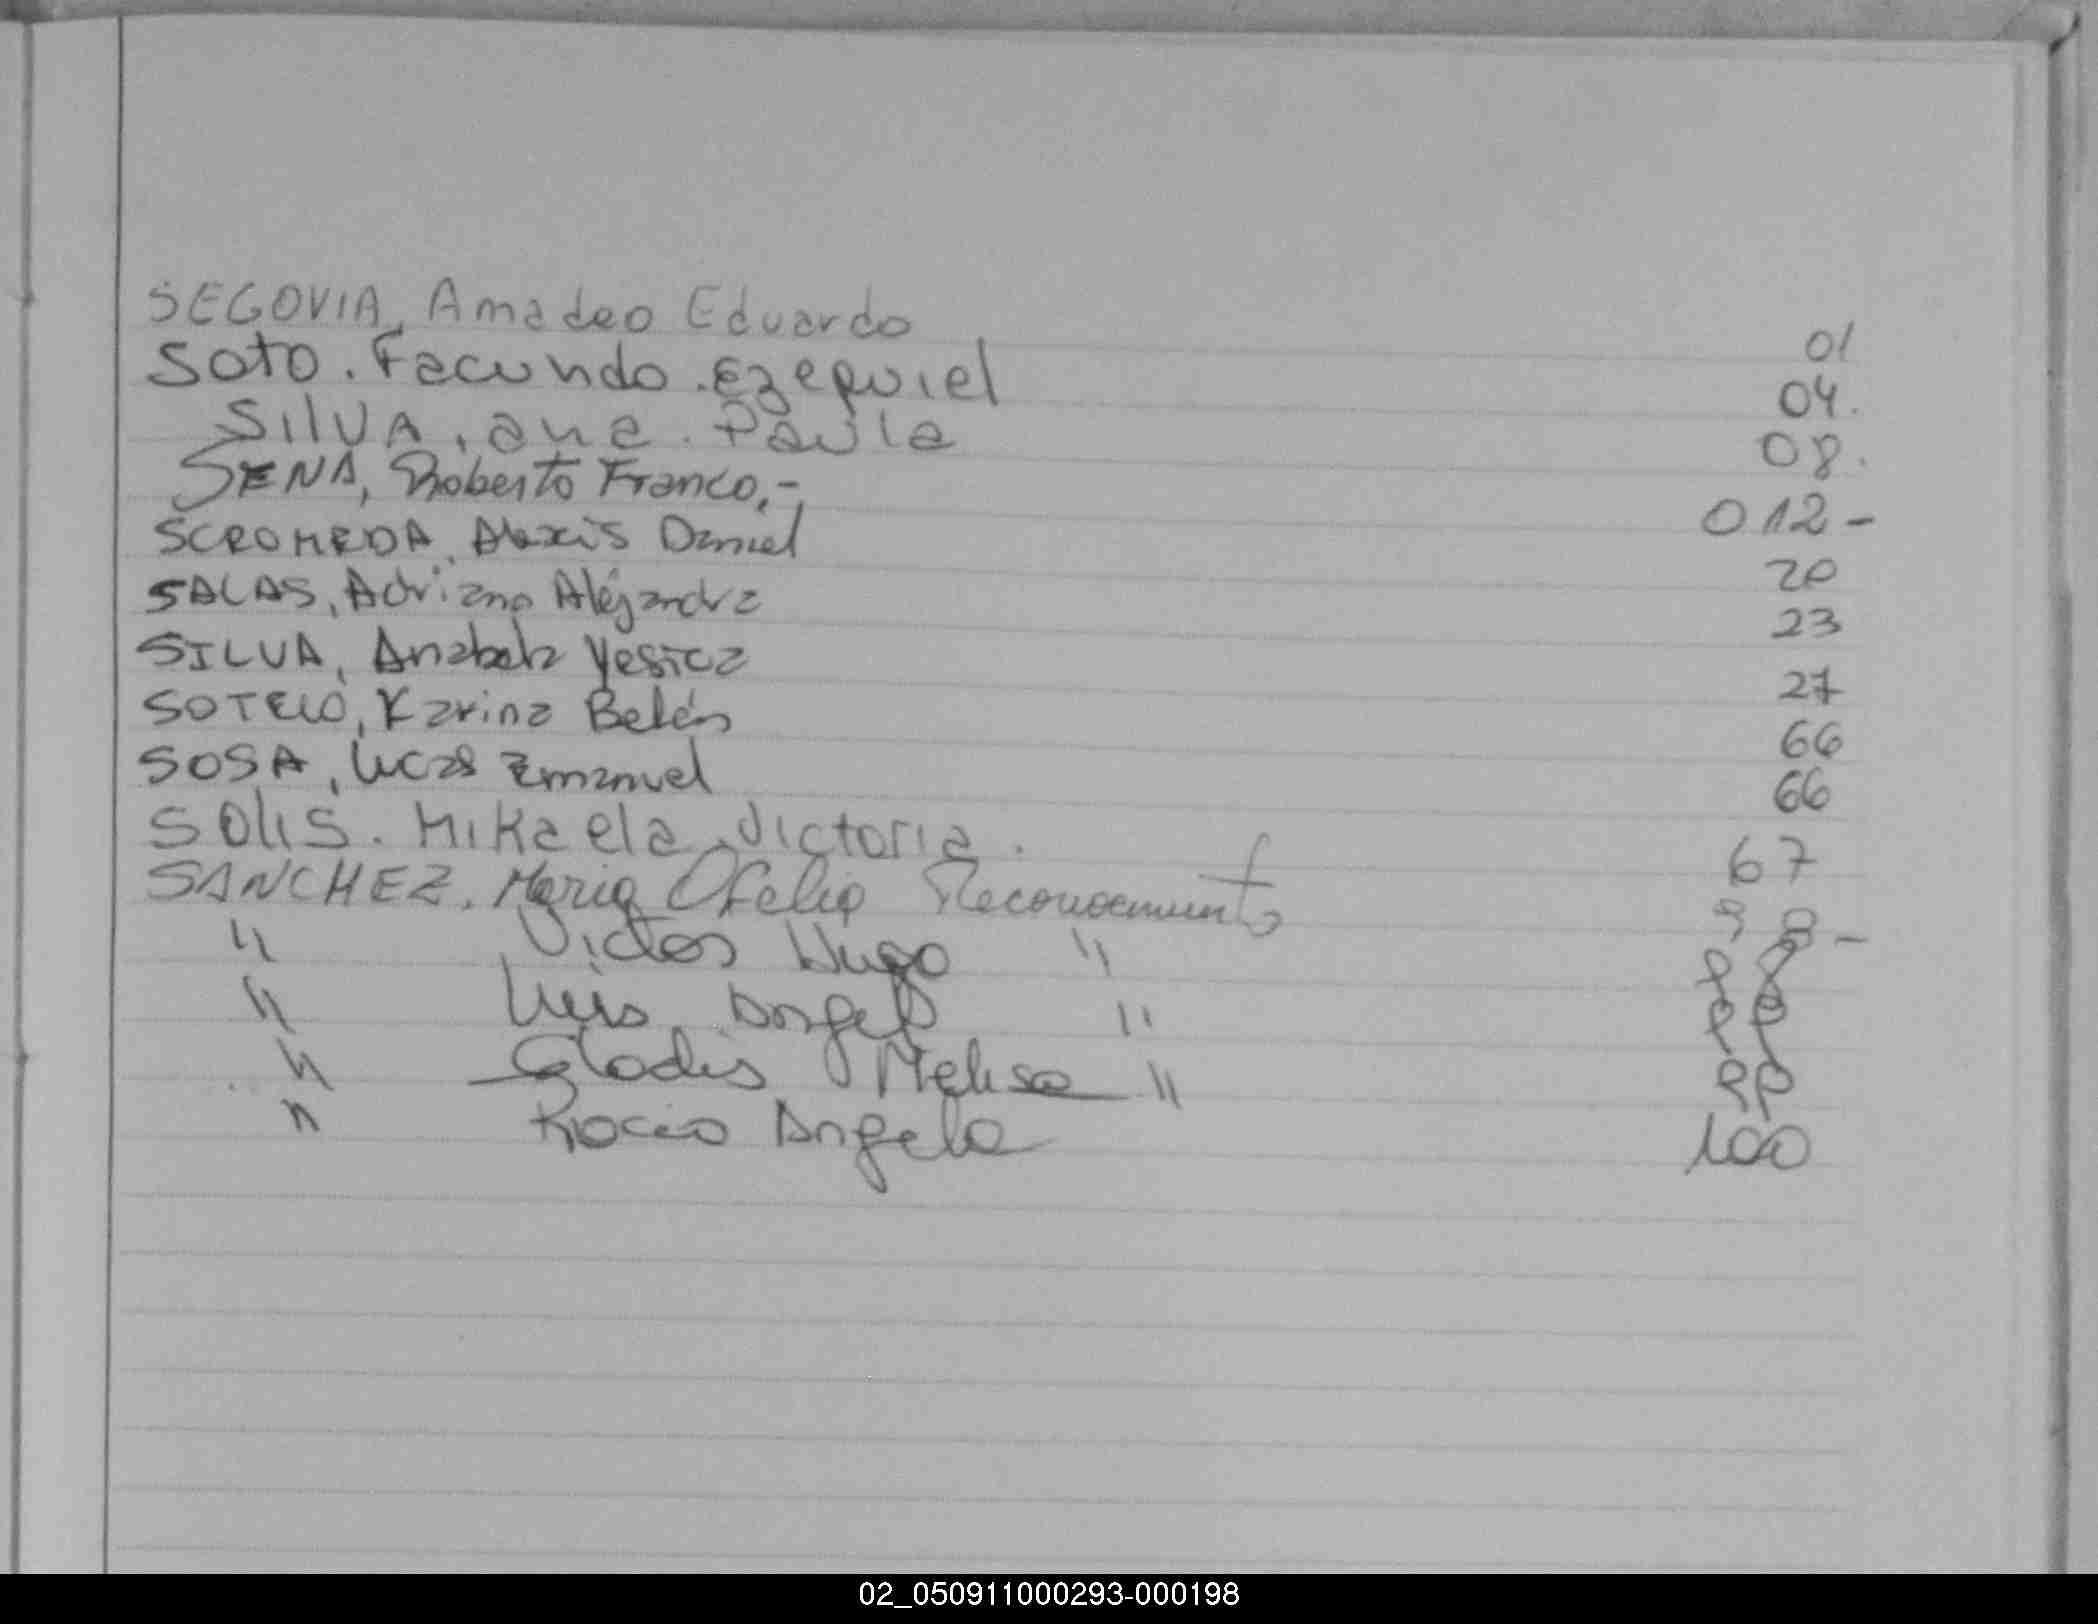 SEGOVIA, Amadeo Eduardo 01
Soto. Facundo. Ezequiel 04.
SilVA, ana. Paula 08.
SENA, Roberto Franco,- 012-
SCROMEDA, Alexis Daniel 20
SALAS, Adriana Alejandra 23
SILVA, Anabela Yesica 27
SOTELO, Karina Belén 66
SOSA, Lucas Emanuel 66
SOlIS. Mikaela Victoria. 67
SANCHEZ, Maria Ofelia Reconocimiento 98-
" Victor Hugo "
" Luis Angel " 99
" Gladis Melisa " 99
" Rocio Angela 100
02_050911000293-000198